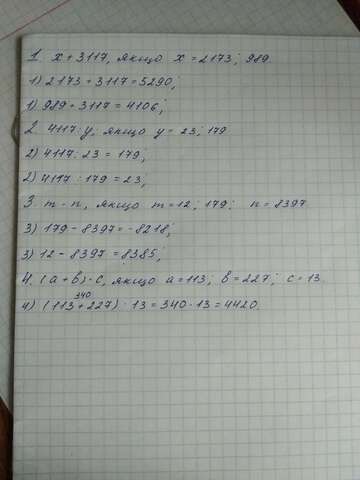 1. x + 3117, якщо x = 2173; 989.
1) 2173 + 3117 = 5290;
1) 989 + 3117 = 4106;
2. 4117 : y, якщо y = 23; 179
2) 4117 : 23 = 179;
2) 4117 : 179 = 23;
3. m - n, якщо m = 12; 179; n = 8397
3) 179 - 8397 = -8218;
3) 12 - 8397 = 8385;
4. (a + b) · c, якщо a = 113; b = 227; c = 13.
340
4) (113 + 227) · 13 = 340 · 13 = 4420.